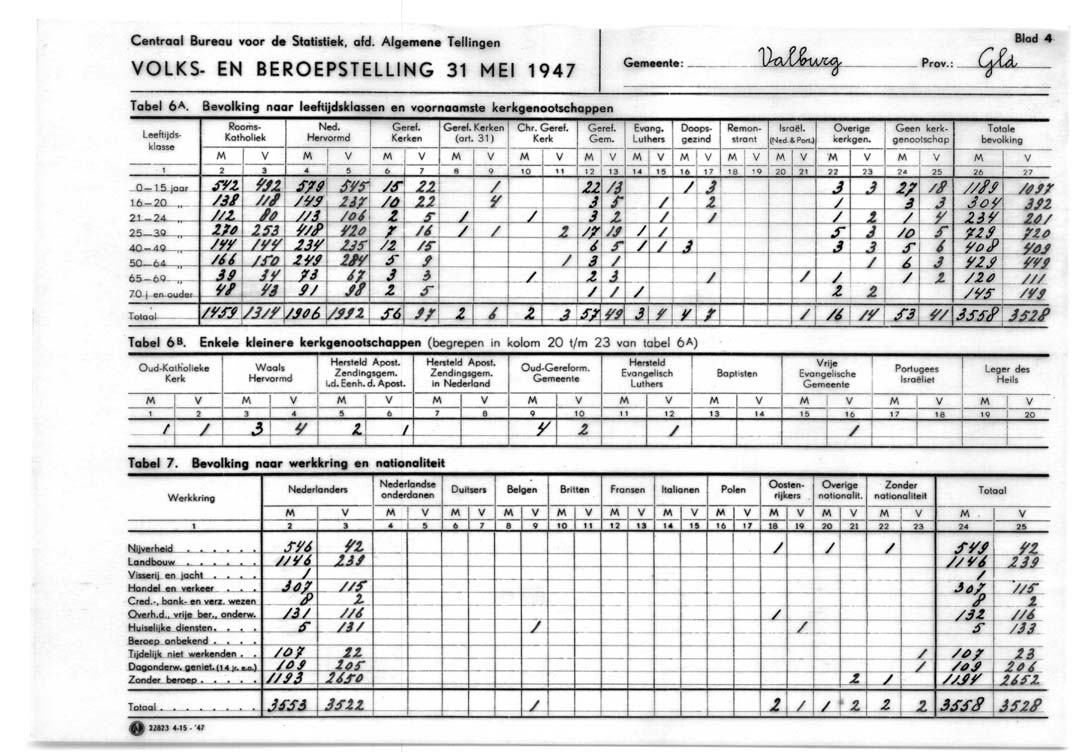 Centraal Bureau voor de Statistiek, afd. Algemene Tellingen
VOLKS- EN BEROEPSTELLING 31 MEI 1947
Blad 4
Gemeente: Valburg Prov.: Gld
Tabel 6A. Bevolking naar leeftijdsklassen en voornaamste kerkgenootschappen
Leeftijds-klasse | Rooms-Katholiek | Ned. Hervormd | Geref. Kerken | Geref. Kerken (art. 31) | Chr. Geref. Kerk | Geref. Gem. | Evang. Luthers | Doops-gezind | Remon-strant | Israël. (Ned. & Port.) | Overige kerkgen. | Geen kerk-genootschap | Totale bevolking
M V M V M V M V M V M V M V M V M V M V M V M V M V
1 2 3 4 5 6 7 8 9 10 11 12 13 14 15 16 17 18 19 20 21 22 23 24 25 26 27
0-15 jaar 542 492 579 545 15 22 1 22 13 1 3 3 3 27 18 1189 1097
16-20 „ 138 118 149 237 10 22 4 3 5 1 2 1 3 3 304 392
21-24 „ 112 80 113 106 2 5 1 1 3 2 1 1 1 2 1 4 234 201
25-39 „ 270 253 418 420 7 16 1 1 2 17 19 1 1 5 3 10 5 729 720
40-49 „ 144 144 234 235 12 15 6 5 1 1 3 3 3 5 6 408 409
50-64 „ 166 150 249 284 5 9 1 3 1 1 6 3 429 449
65-69 „ 39 34 73 67 3 3 1 2 3 1 1 1 1 2 120 111
70 j en ouder 48 43 91 98 2 5 1 1 1 2 2 145 149
Totaal 1459 1314 1906 1992 56 97 2 6 2 3 57 49 3 4 4 7 1 16 14 53 41 3558 3528
Tabel 6B. Enkele kleinere kerkgenootschappen (begrepen in kolom 20 t/m 23 van tabel 6A)
Oud-Katholieke Kerk | Waals Hervormd | Hersteld Apost. Zendingsgem. i.d. Eenh. d. Apost. | Hersteld Apost. Zendingsgem. in Nederland | Oud-Gereform. Gemeente | Hersteld Evangelisch Luthers | Baptisten | Vrije Evangelische Gemeente | Portugees Israëliet | Leger des Heils
M V M V M V M V M V M V M V M V M V M V
1 2 3 4 5 6 7 8 9 10 11 12 13 14 15 16 17 18 19 20
1 1 3 4 2 1 4 2 1 1
Tabel 7. Bevolking naar werkkring en nationaliteit
Werkkring | Nederlanders | Nederlandse onderdanen | Duitsers | Belgen | Britten | Fransen | Italianen | Polen | Oosten-rijkers | Overige nationalit. | Zonder nationaliteit | Totaal
M V M V M V M V M V M V M V M V M V M V M V M V
1 2 3 4 5 6 7 8 9 10 11 12 13 14 15 16 17 18 19 20 21 22 23 24 25
Nijverheid . . . . . . 546 42 1 1 1 549 42
Landbouw . . . . . . 1146 239 1146 239
Visserij en jacht . . . . 1 1
Handel en verkeer . . . . 307 115 307 115
Cred.-, bank- en verz. wezen 8 2 8 2
Overh.d., vrije ber., onderw. 131 116 1 132 116
Huiselijke diensten . . . . 5 131 1 1 5 133
Beroep onbekend . . . .
Tijdelijk niet werkenden . . 107 22 1 107 23
Dagonderw. geniet. (14 jr. e.o.) 109 205 1 109 206
Zonder beroep . . . . . 1193 2650 2 1 1194 2652
Totaal . . . . . . . . 3553 3522 1 2 1 1 2 2 2 3558 3528
22823 4-15 - '47